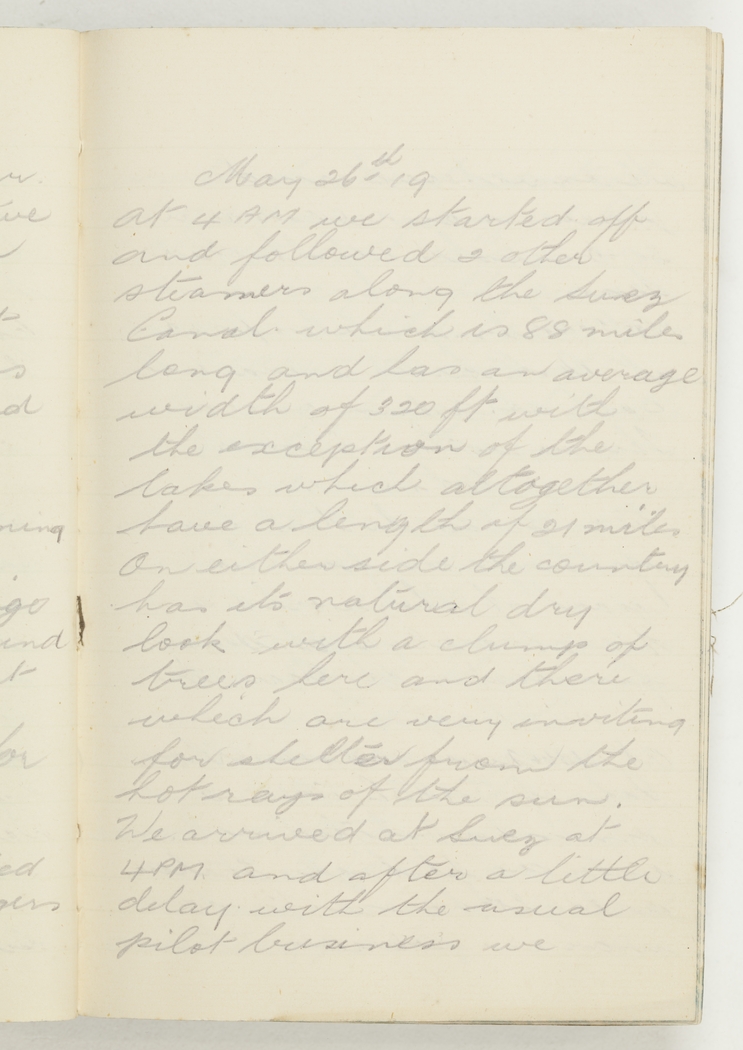 May 26th 19
at 4 AM we started off
and followed 2 other
steamers along the Suez
Canal. which is 88 miles
long and has an average
width of 320 ft. with
the exception of the
lakes which altogether
have a length of 21 miles
On either side the country
has its natural dry
look with a clump of
trees here and there
which are very inviting
for shelter from the
hot rays of the sun.
We arrived at Suez at
4 PM. and after a little
delay with the usual
pilot business we